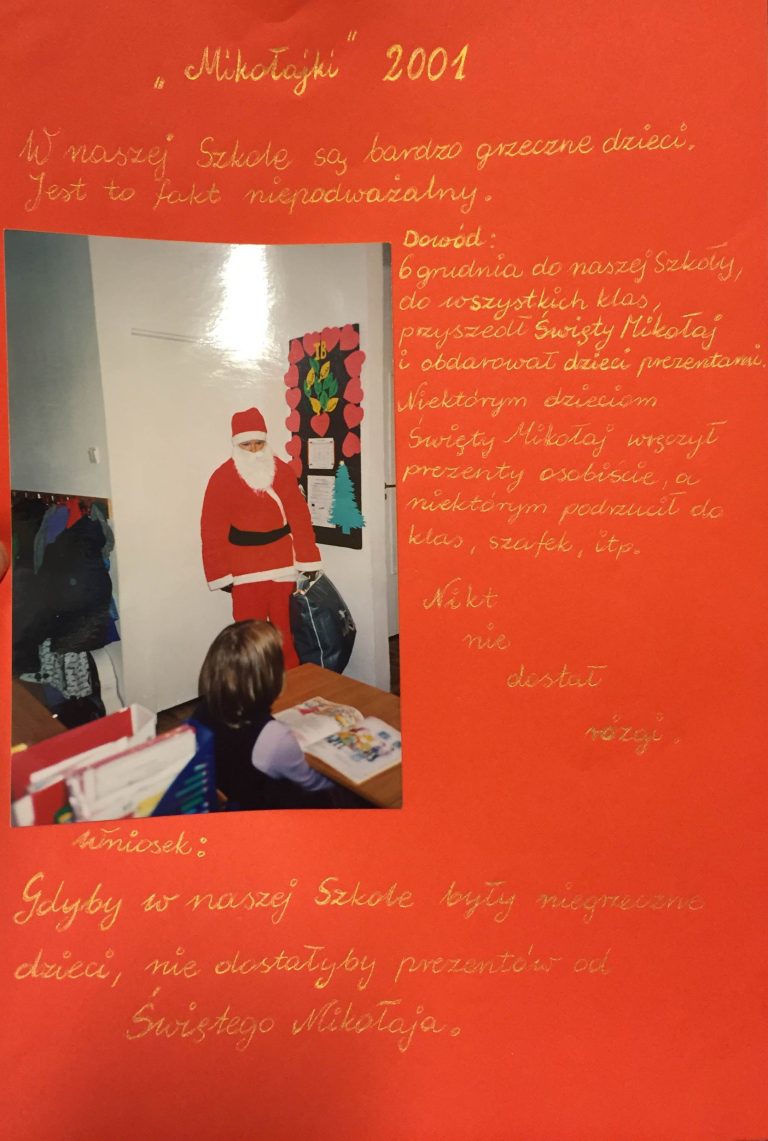 „Mikołajki” 2001
W naszej Szkole są bardzo grzeczne dzieci.
Jest to fakt niepodważalny.
Dowód:
6 grudnia do naszej Szkoły,
do wszystkich klas,
przyszedł Święty Mikołaj
i obdarował dzieci prezentami.
Niektórym dzieciom
Święty Mikołaj wręczył
prezenty osobiście, a
niektórym podrzucił do
klas, szafek, itp.
Nikt
nie
dostał
rózgi.
IB
Wniosek:
Gdyby w naszej Szkole były niegrzeczne
dzieci, nie dostałyby prezentów od
Świętego Mikołaja.